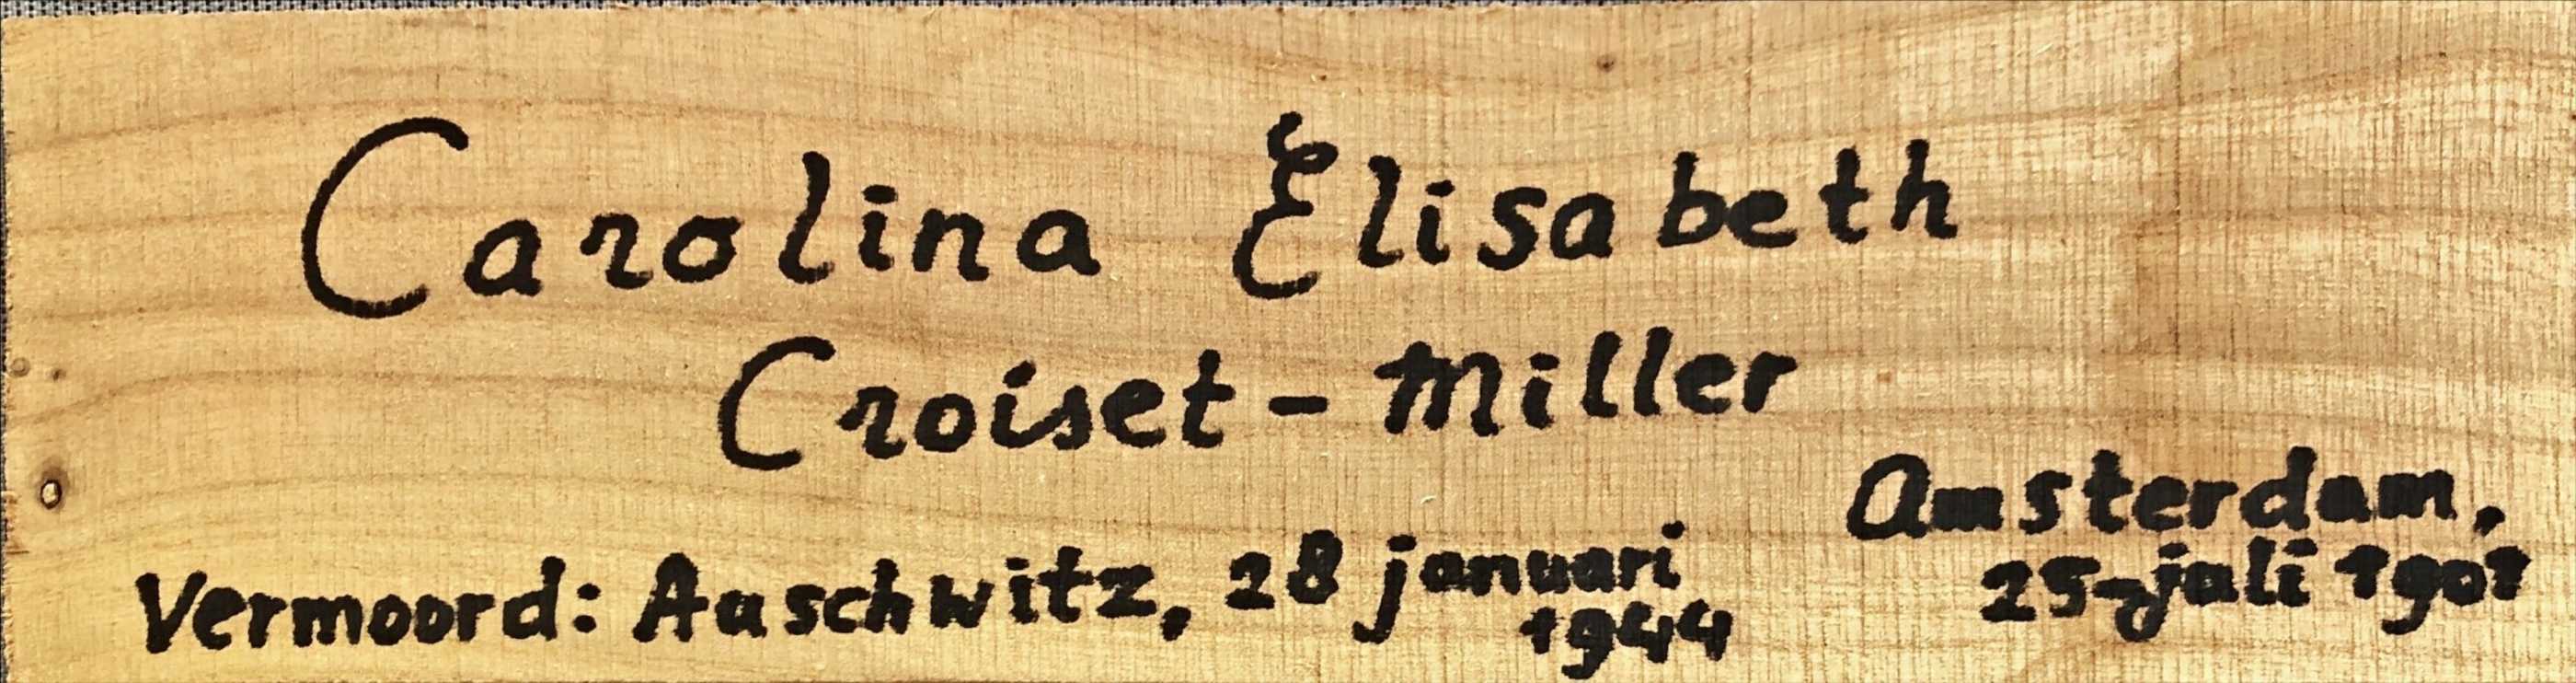 Carolina Elisabeth
Croiset - Miller
Amsterdam,
25 juli 1901
Vermoord: Auschwitz, 28 januari
1944